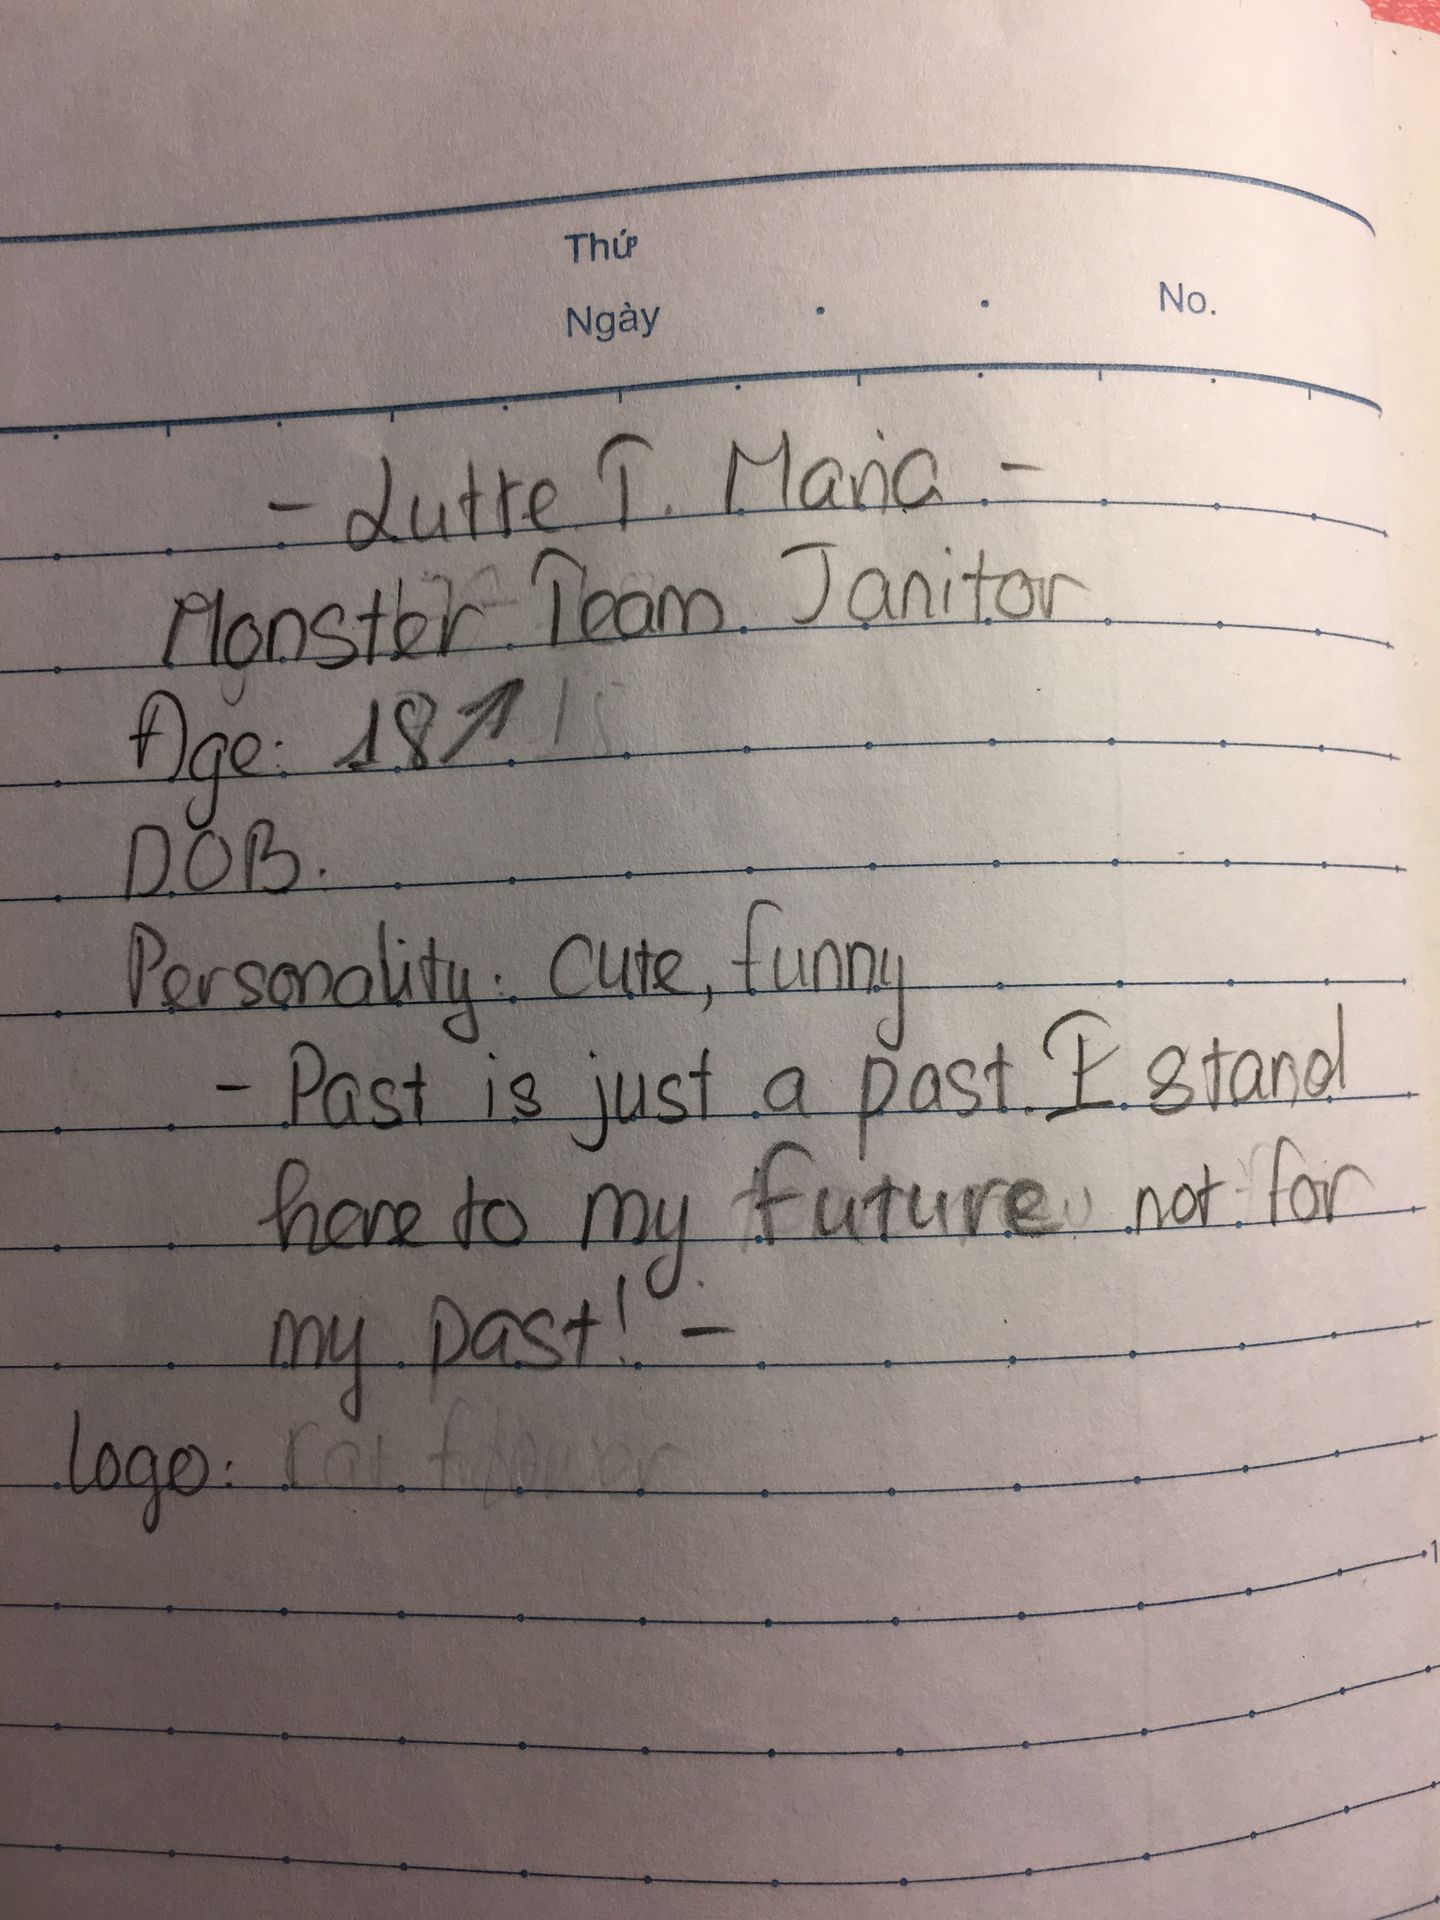 Thứ
Ngày No.
- Lutte T. Maria -
Monster Team Janitor
Age: 18↑
DOB.
Personality: Cute, funny
- Past is just a past. I stand
here to my future not for
my past! -
logo: flower